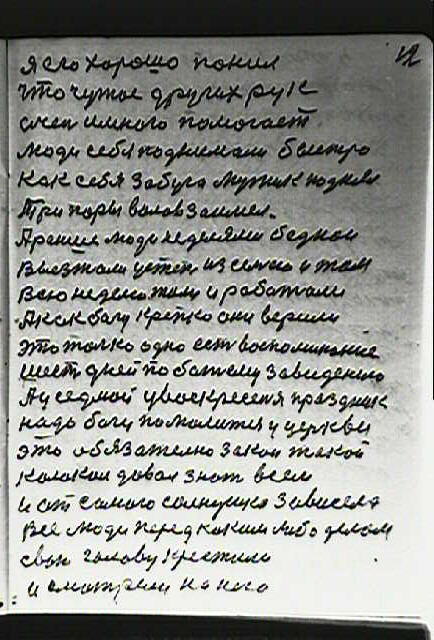 12
Я его хорошо понил
что чужое других рук
много помогает
люди себя поднимали быстро
Как себя забура мужик поднял
Три пары валов заимел.
Аранше люди неделями
выезжали из семю и там
всю неделю жили и работали
Акак богу крепко они верили
это толко одно есть воспоминание
шест дней по божему заведению
Ау седмой увоскресеня праздник
надо богу помолится у церкви
это обязателно закон такой
Колокол давал знат всем
и от самого солнушка зависела
Все люди перед каким либо делом
свою голову крестили
и смотрели на ного